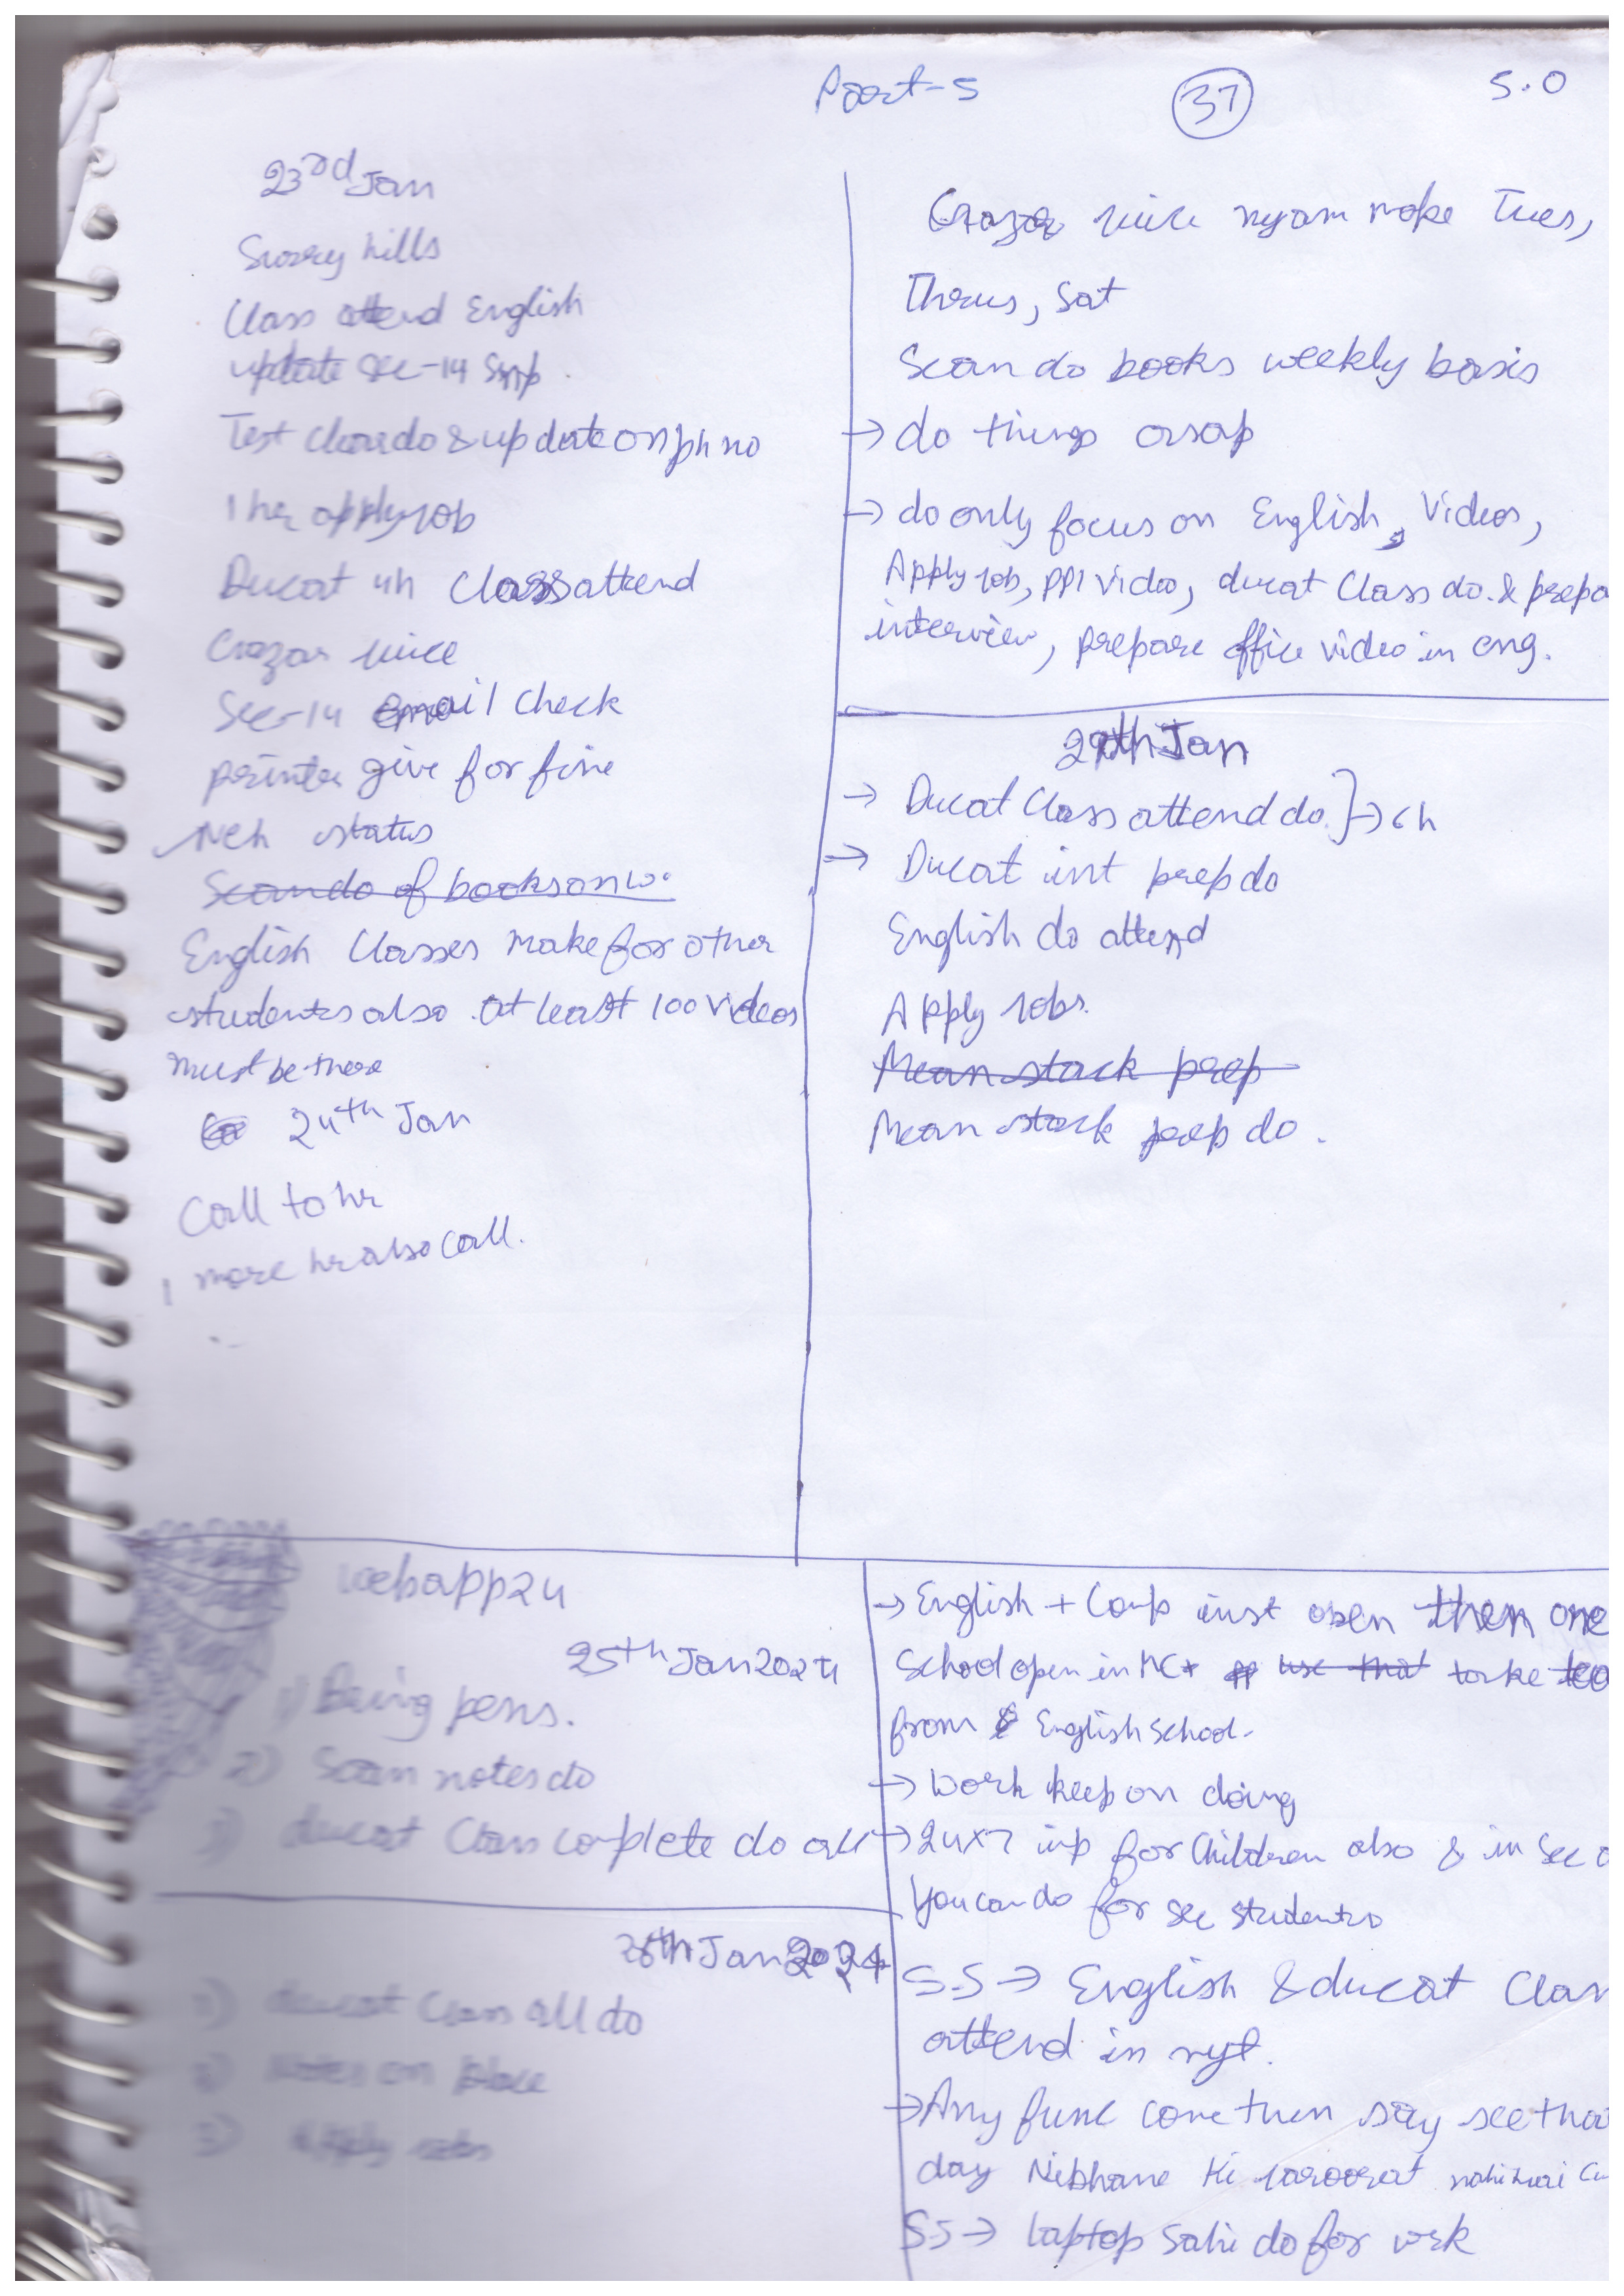 Part-5 37 5.0
23rd Jan
Surrey hills
Class attend English
update sec-14
Test clear do & update on ph no
1 hr apply job
Ducat 4h Class attend
Gazar juice
Sec-14 email check
printer give for fine
Neh status
Scan do of books on w.
English Classes make for other
students also. At least 100 videos
must be there
24th Jan
Call to hr
1 more hr also call.
Gazar juice make Tues,
Thrus, Sat
Scan do books weekly basis
→ do things asap
→ do only focus on English, Videos,
Apply job, PPI video, ducat Class do. & prepa
interview, prepare office video in eng.
Jan
→ Ducat Class attend do. } → 6h
→ Ducat int prep do
English do attend
Apply jobs.
Mean stack prep
Mean stack prep do.
webapp24
25th Jan 2024
1) Being pens.
2) Scan notes do
3) ducat Class complete do all
26th Jan 2024
1) ducat Class all do
2) Notes on place
3) Apply
→ English + Comp inst open then one
School open in use that take
from English School.
→ Work keep on doing
→ 24x7 inp for Children also & in Sec
You can do for sec students
S.S → English & ducat Clas
attend in nyt.
→ Any func come then say see tha
day Nibhane Ki jaroorat nahi hai
SS → laptop sahi do for wrk